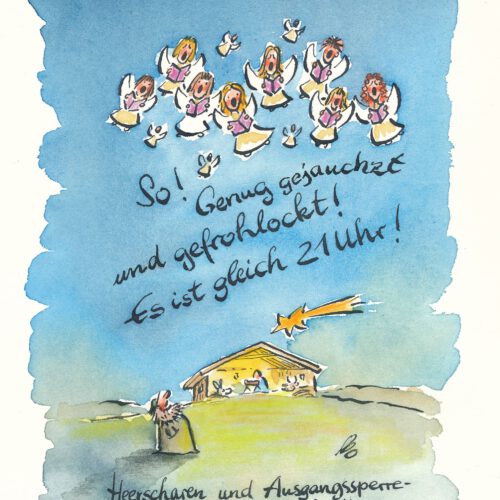 So! Genug gejauchzt
und gefrohlockt!
Es ist gleich 21 Uhr!
Heerscharen und Ausgangssperre-